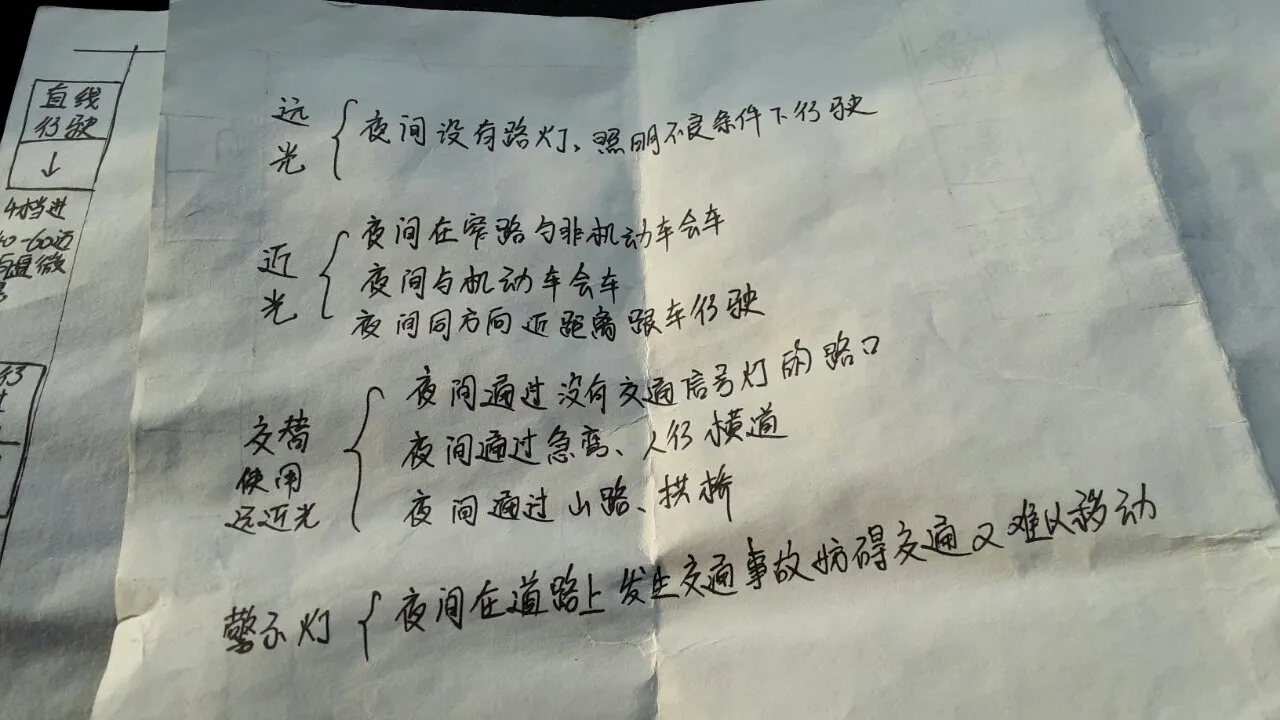 直线
行驶
↓
4档进
远
光
夜间没有路灯、照明不良条件下行驶
近
光
夜间在窄路与非机动车会车
夜间与机动车会车
夜间同方向近距离跟车行驶
交替
使用
远近光
夜间通过没有交通信号灯的路口
夜间通过急弯、人行横道
夜间通过山路、拱桥
警示灯
夜间在道路上发生交通事故妨碍交通又难以移动